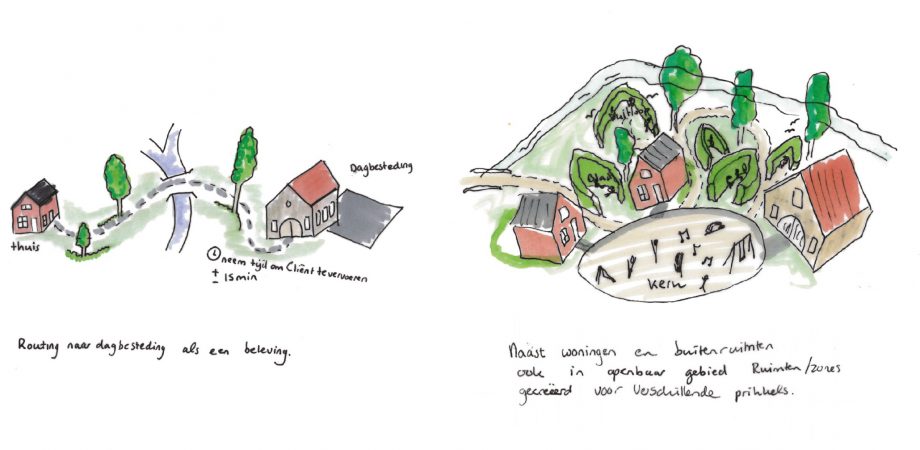 Dagbesteding
thuis
neem tijd om Cliënt te vervoeren
± 15 min
Routing naar dagbesteding als een beleving.
kern
Naast woningen en buitenruimten
ook in openbaar gebied Ruimten/zones
gecreëerd voor verschillende prikkels.